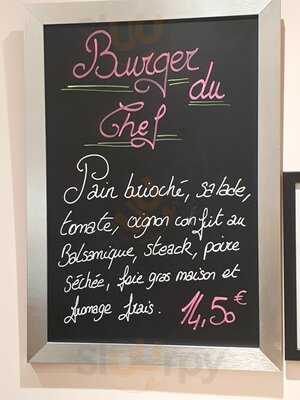 Burger
du
Chef
Pain brioché, salade,
tomate, oignon confit au
Balsamique, steack, poire
séchée, foie gras maison et
fromage frais. 14,50€